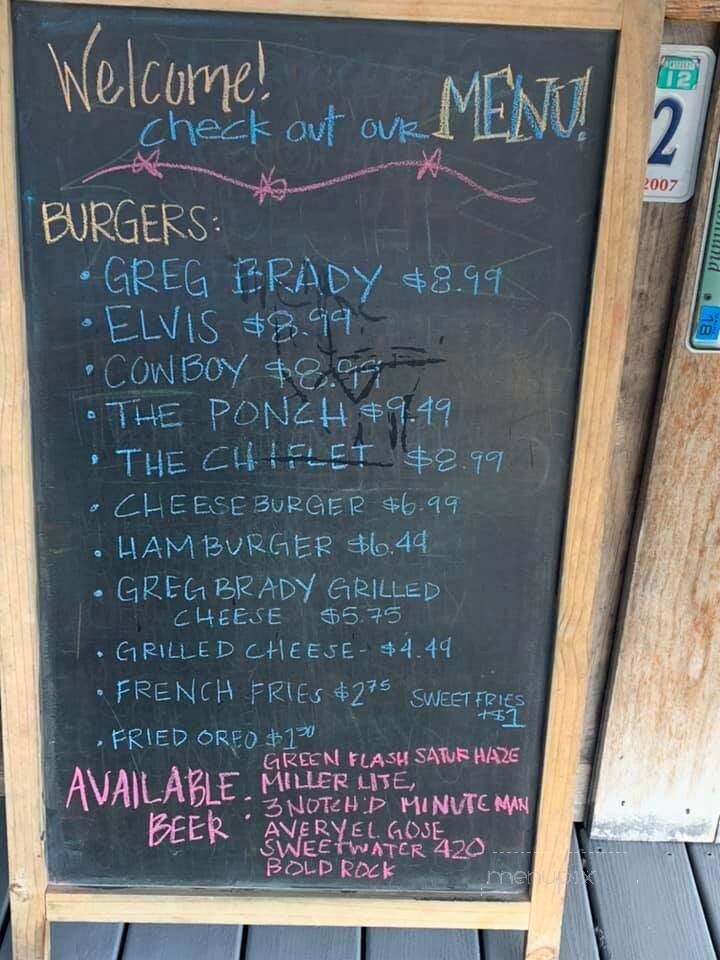 Welcome!
check out our MENU!
BURGERS:
• GREG BRADY $8.99
• ELVIS $8.99
• COWBOY $8.99
• THE PONCH $9.49
• THE CHIFLET $8.99
• CHEESEBURGER $6.99
• HAMBURGER $6.49
• GREG BRADY GRILLED
CHEESE $5.75
• GRILLED CHEESE- $4.49
• FRENCH FRIES $2 75 SWEET FRIES
+$1
• FRIED OREO $1 50
AVAILABLE BEER:
GREEN FLASH SATUR HAZE
MILLER LITE,
3 NOTCH'D MINUTE MAN
AVERY EL GOSE
SWEETWATER 420
BOLD ROCK
menupix
12
2
2007
18